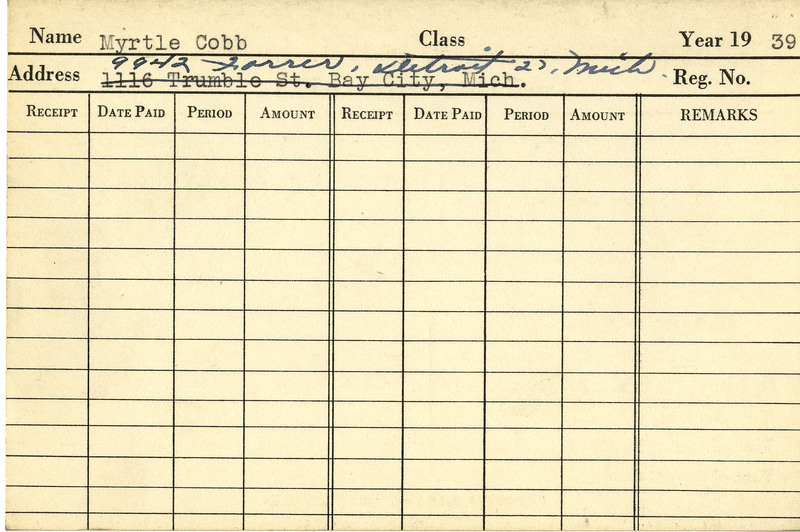 Name Myrtle Cobb Class Year 19 39
9942 Forrer, Detroit 27, Mich.
Address 1116 Trumble St. Bay City, Mich. Reg. No.
RECEIPT DATE PAID PERIOD AMOUNT RECEIPT DATE PAID PERIOD AMOUNT REMARKS